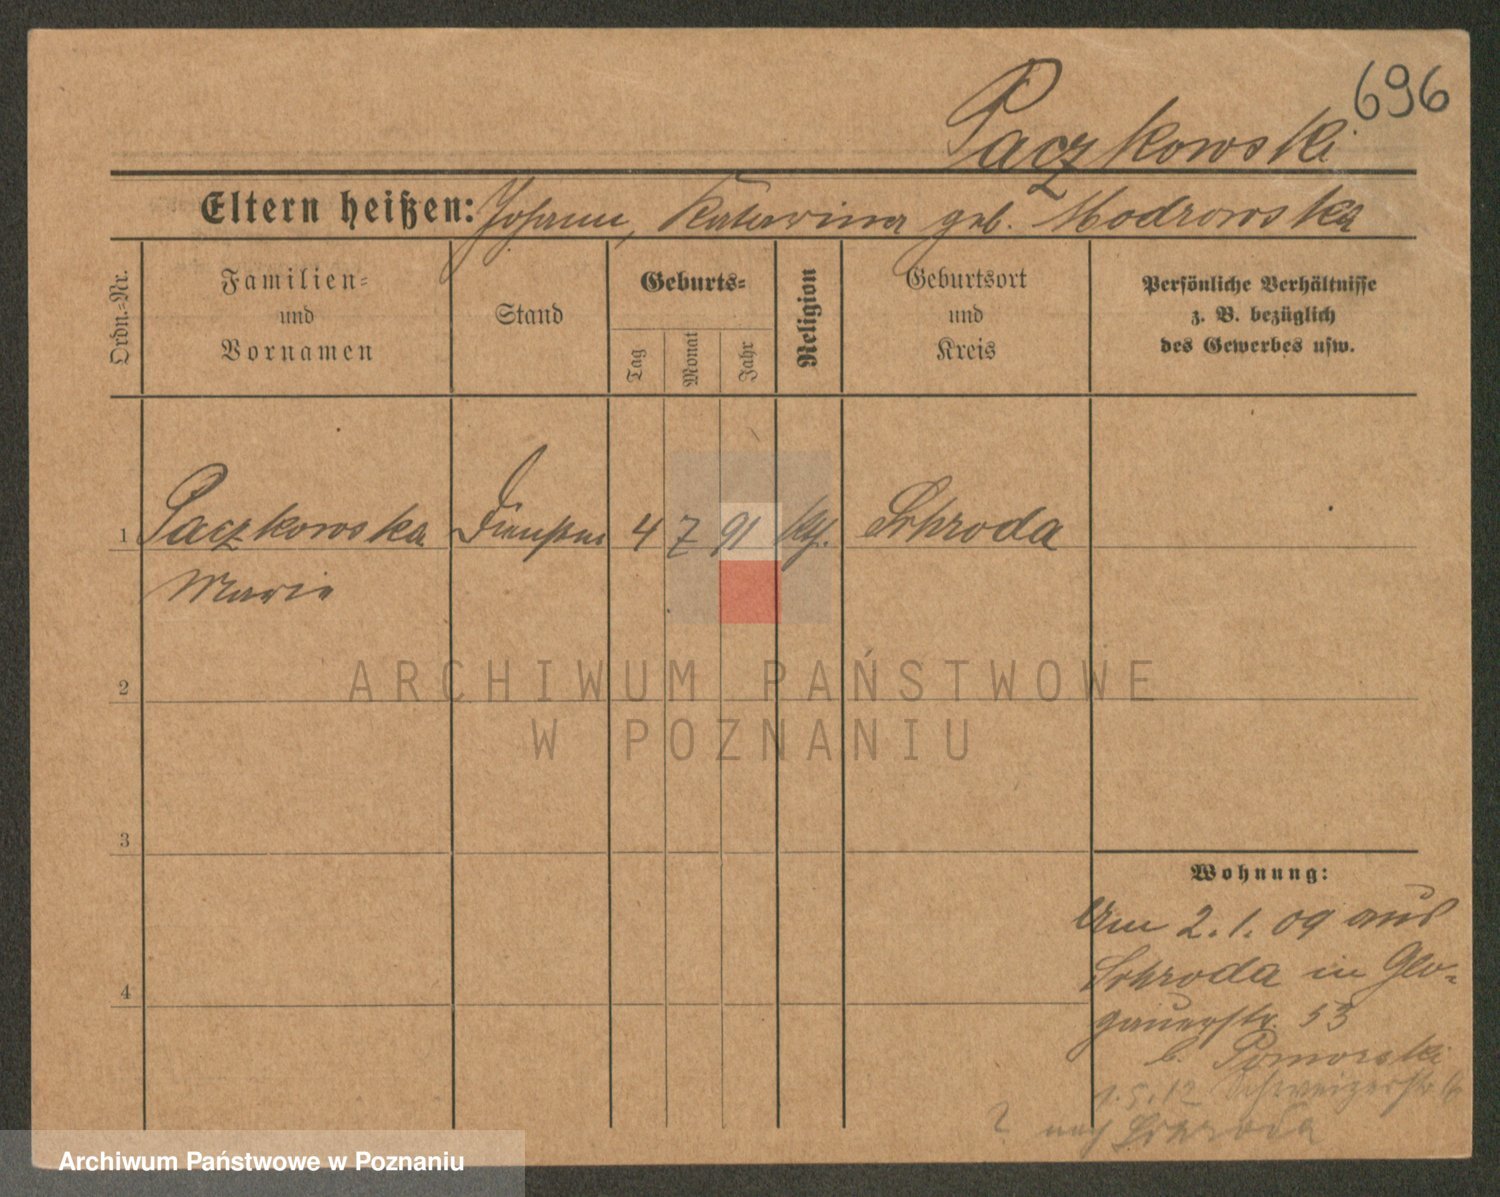 696
Paczkowski
Eltern heißen: Johann, Katarzina geb. Modrowska
Ordn.-Nr.
Familien-
und
Vornamen
Stand
Geburts-
Tag
Monat
Jahr
Religion
Geburtsort
und
Kreis
Persönliche Verhältnisse
z. B. bezüglich
des Gewerbes usw.
1 Paczkowska 4 7 91 kth. Schroda
Marie
2
3
4
ARCHIWUM PAŃSTWOWE
W POZNANIU
Wohnung:
Am 2.1.09 aus
Schroda in Glo-
gauerstr. 53
b. Pomorski
1.5.12 Schweizerstr.
? nach Schroda
Archiwum Państwowe w Poznaniu